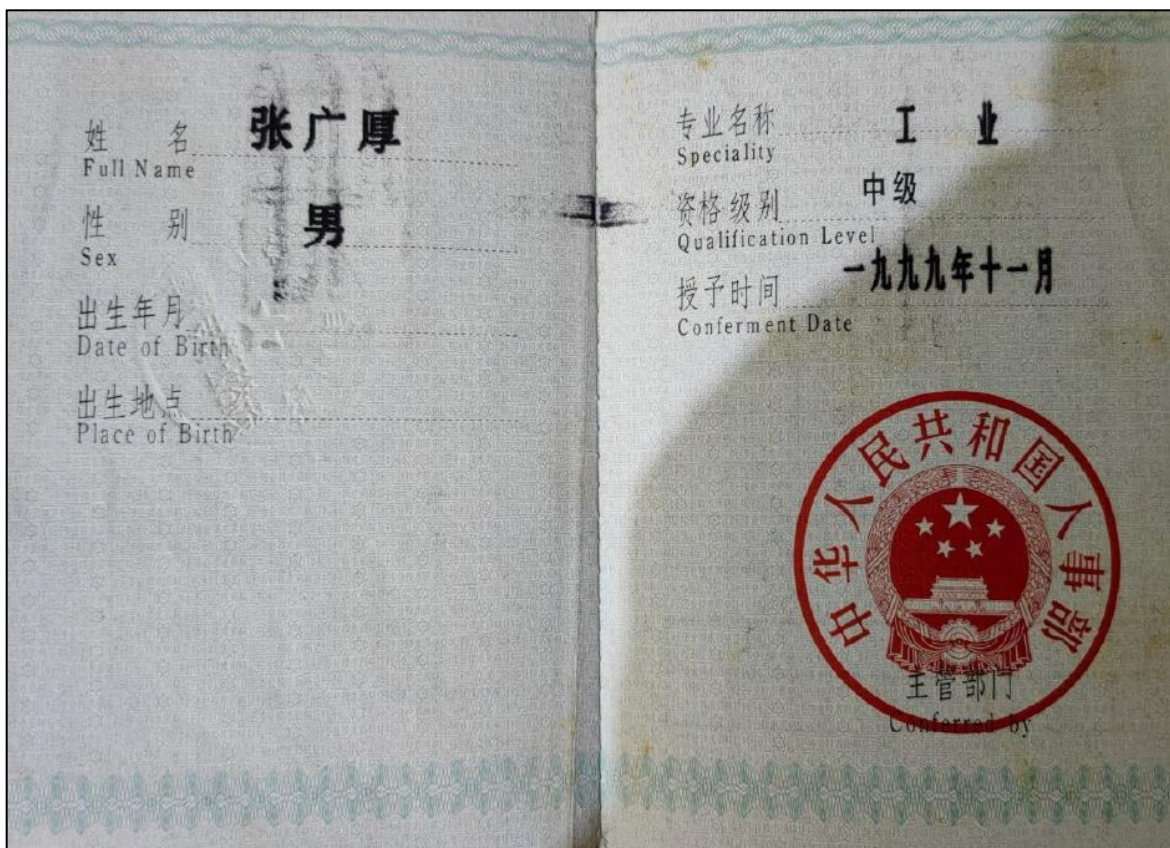 姓 名 张广厚
Full Name
性 别 男
Sex
出生年月
Date of Birth
出生地点
Place of Birth
专业名称 工 业
Speciality
资格级别 中级
Qualification Level
授予时间 一九九九年十一月
Conferment Date
中华人民共和国人事部
主管部门
Conferred by